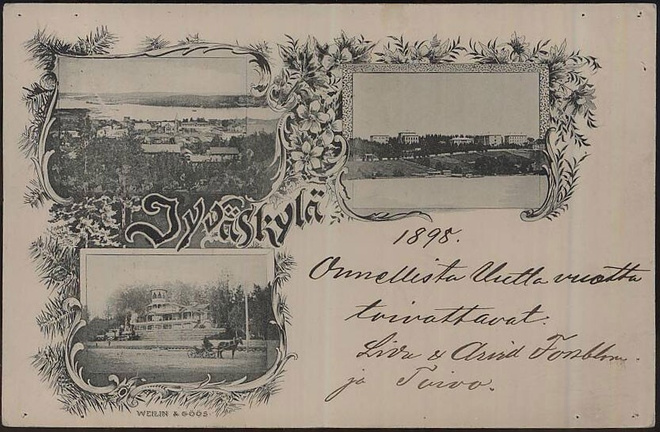 Jyväskylä
1898.
Onnellista Uutta vuotta
toivottavat.
Liva & Arvid Forsblom.
ja Toivo.
WEILIN & GÖÖS